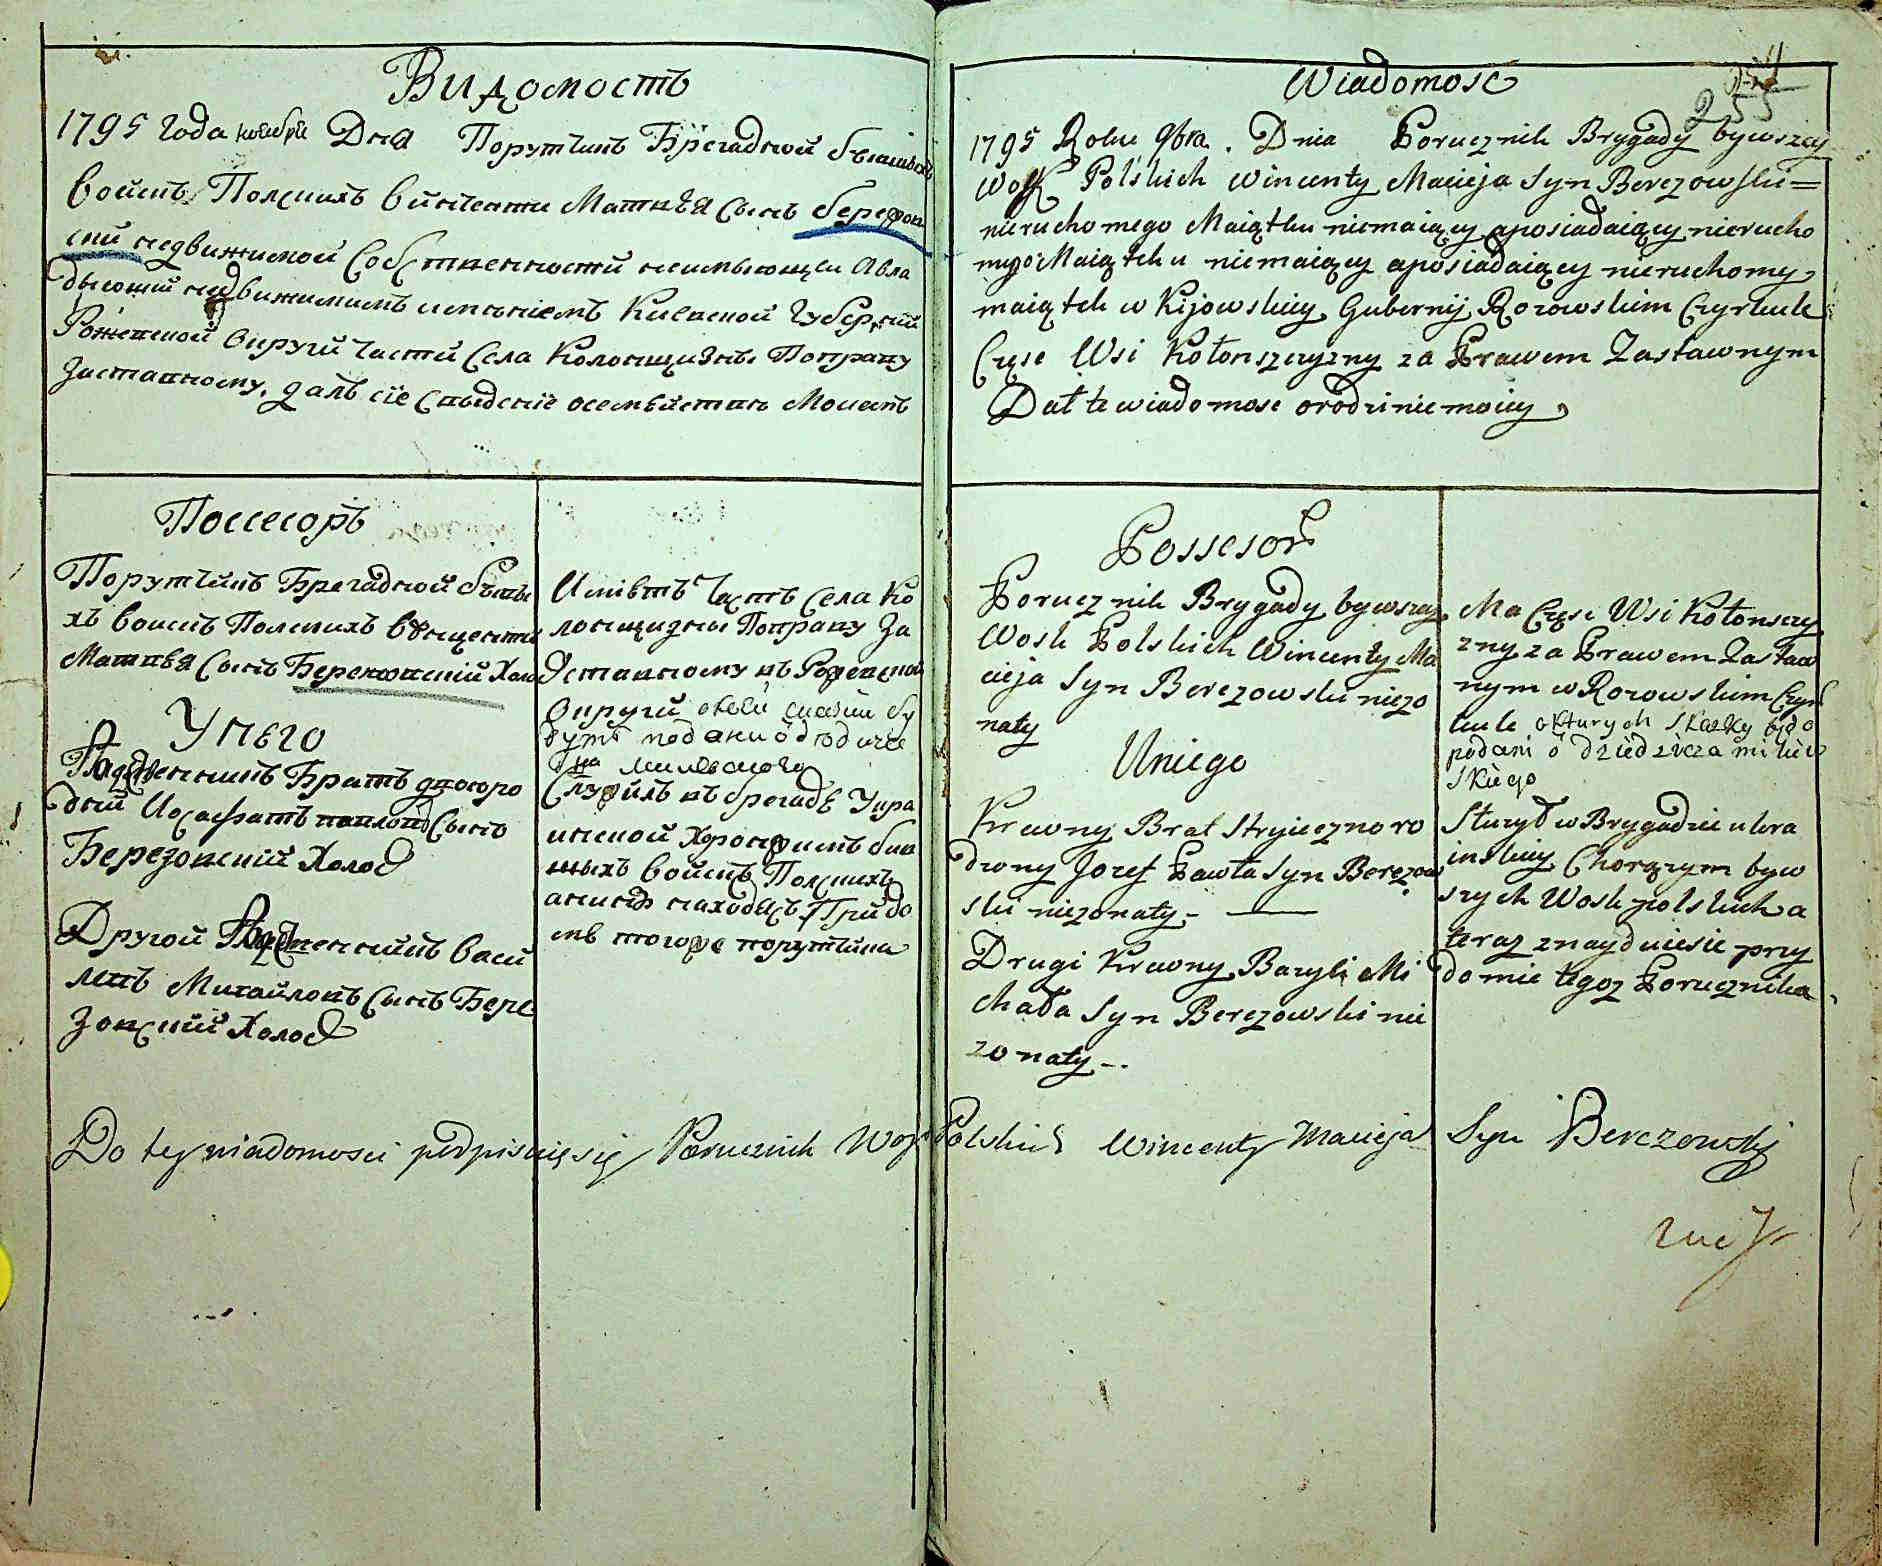 Видомость
1795 года ноября Дня Порутчикъ Брегадной бывшихъ
войскъ Полскихъ викентий Матвѣя Сынъ березов
ский недвижимой Собственности неимѣющей Авла
дѣющий недвижимимъ имѣниемъ Киевской Губернии
Рожевской округи Части Села Колонщизны Поправу
Заставному, далъ сие Сведение осемѣйстве Моемъ
Поссесоръ
Порутчикъ Брегадной бывши
хъ воискъ Полскихъ викценти
Матвѣя Сынъ Березовский Холо
У него
Братъ двоюро
дний Иосафатъ павловъ Сынъ
Березовский Холос
Другой васи
лиъ Михайловъ Сынъ Бере
зовский Холос
Имѣетъ Часть Села Ко
лонщизны Поправу За
ставному въ Рожевской
округи оКоеи сказки бу
дутъ поданы одъ дѣдиче
Служилъ въ брегадѣ Укра
инской Хоронжимъ бив
шыхъ воискъ Полскихъ
анинѣ находясь При до
мѣ тогоже порутчика
Wiadomosc
255
1795 Roku 9bra. Dnia Porucznik Brygady bywszey
Woysk Polskich Wincenty Macieja Syn Berezowski=
nieruchomego Maiątku niemaiący aposiadaiący nierucho
mego Maiątku niemaiący aposiadaiący nieruchomy
maiątek w Kijowskiey Gubernij Rozowskim Cyrkule
Częsc Wsi Kołonszczyzny za Prawem Zastawnym
Dał te wiadomosc orodzinie moiey
Possesor
Porucznik Brygady bywszey
Wosk Polskich Wincenty Ma
cieja Syn Berezowski niezo
naty
Uniego
Krewny Brat Stryieczno ro
dzony Jozef Pawła Syn Berezow
ski niezonaty.
Drugi Krewny Bazyli Mi
chała Syn Berezowski nie
zonaty
Ma Częsc Wsi Kołonszczy
zny za Prawem Zastaw
nym w Rozowskim Cyr
kule okturych skazky będo
podani o dziedzicza milew
skiego
Słuzył w Brygadzie ukra
inskiey Chorązym byw
szych Wosk polskich a
teraz znayduiesie przy
domie tegoz Porucznika
Do tey wiadomosci podpisuię się Porucznik Woysk Polskich Wincenty Macieja Syn Berezowski